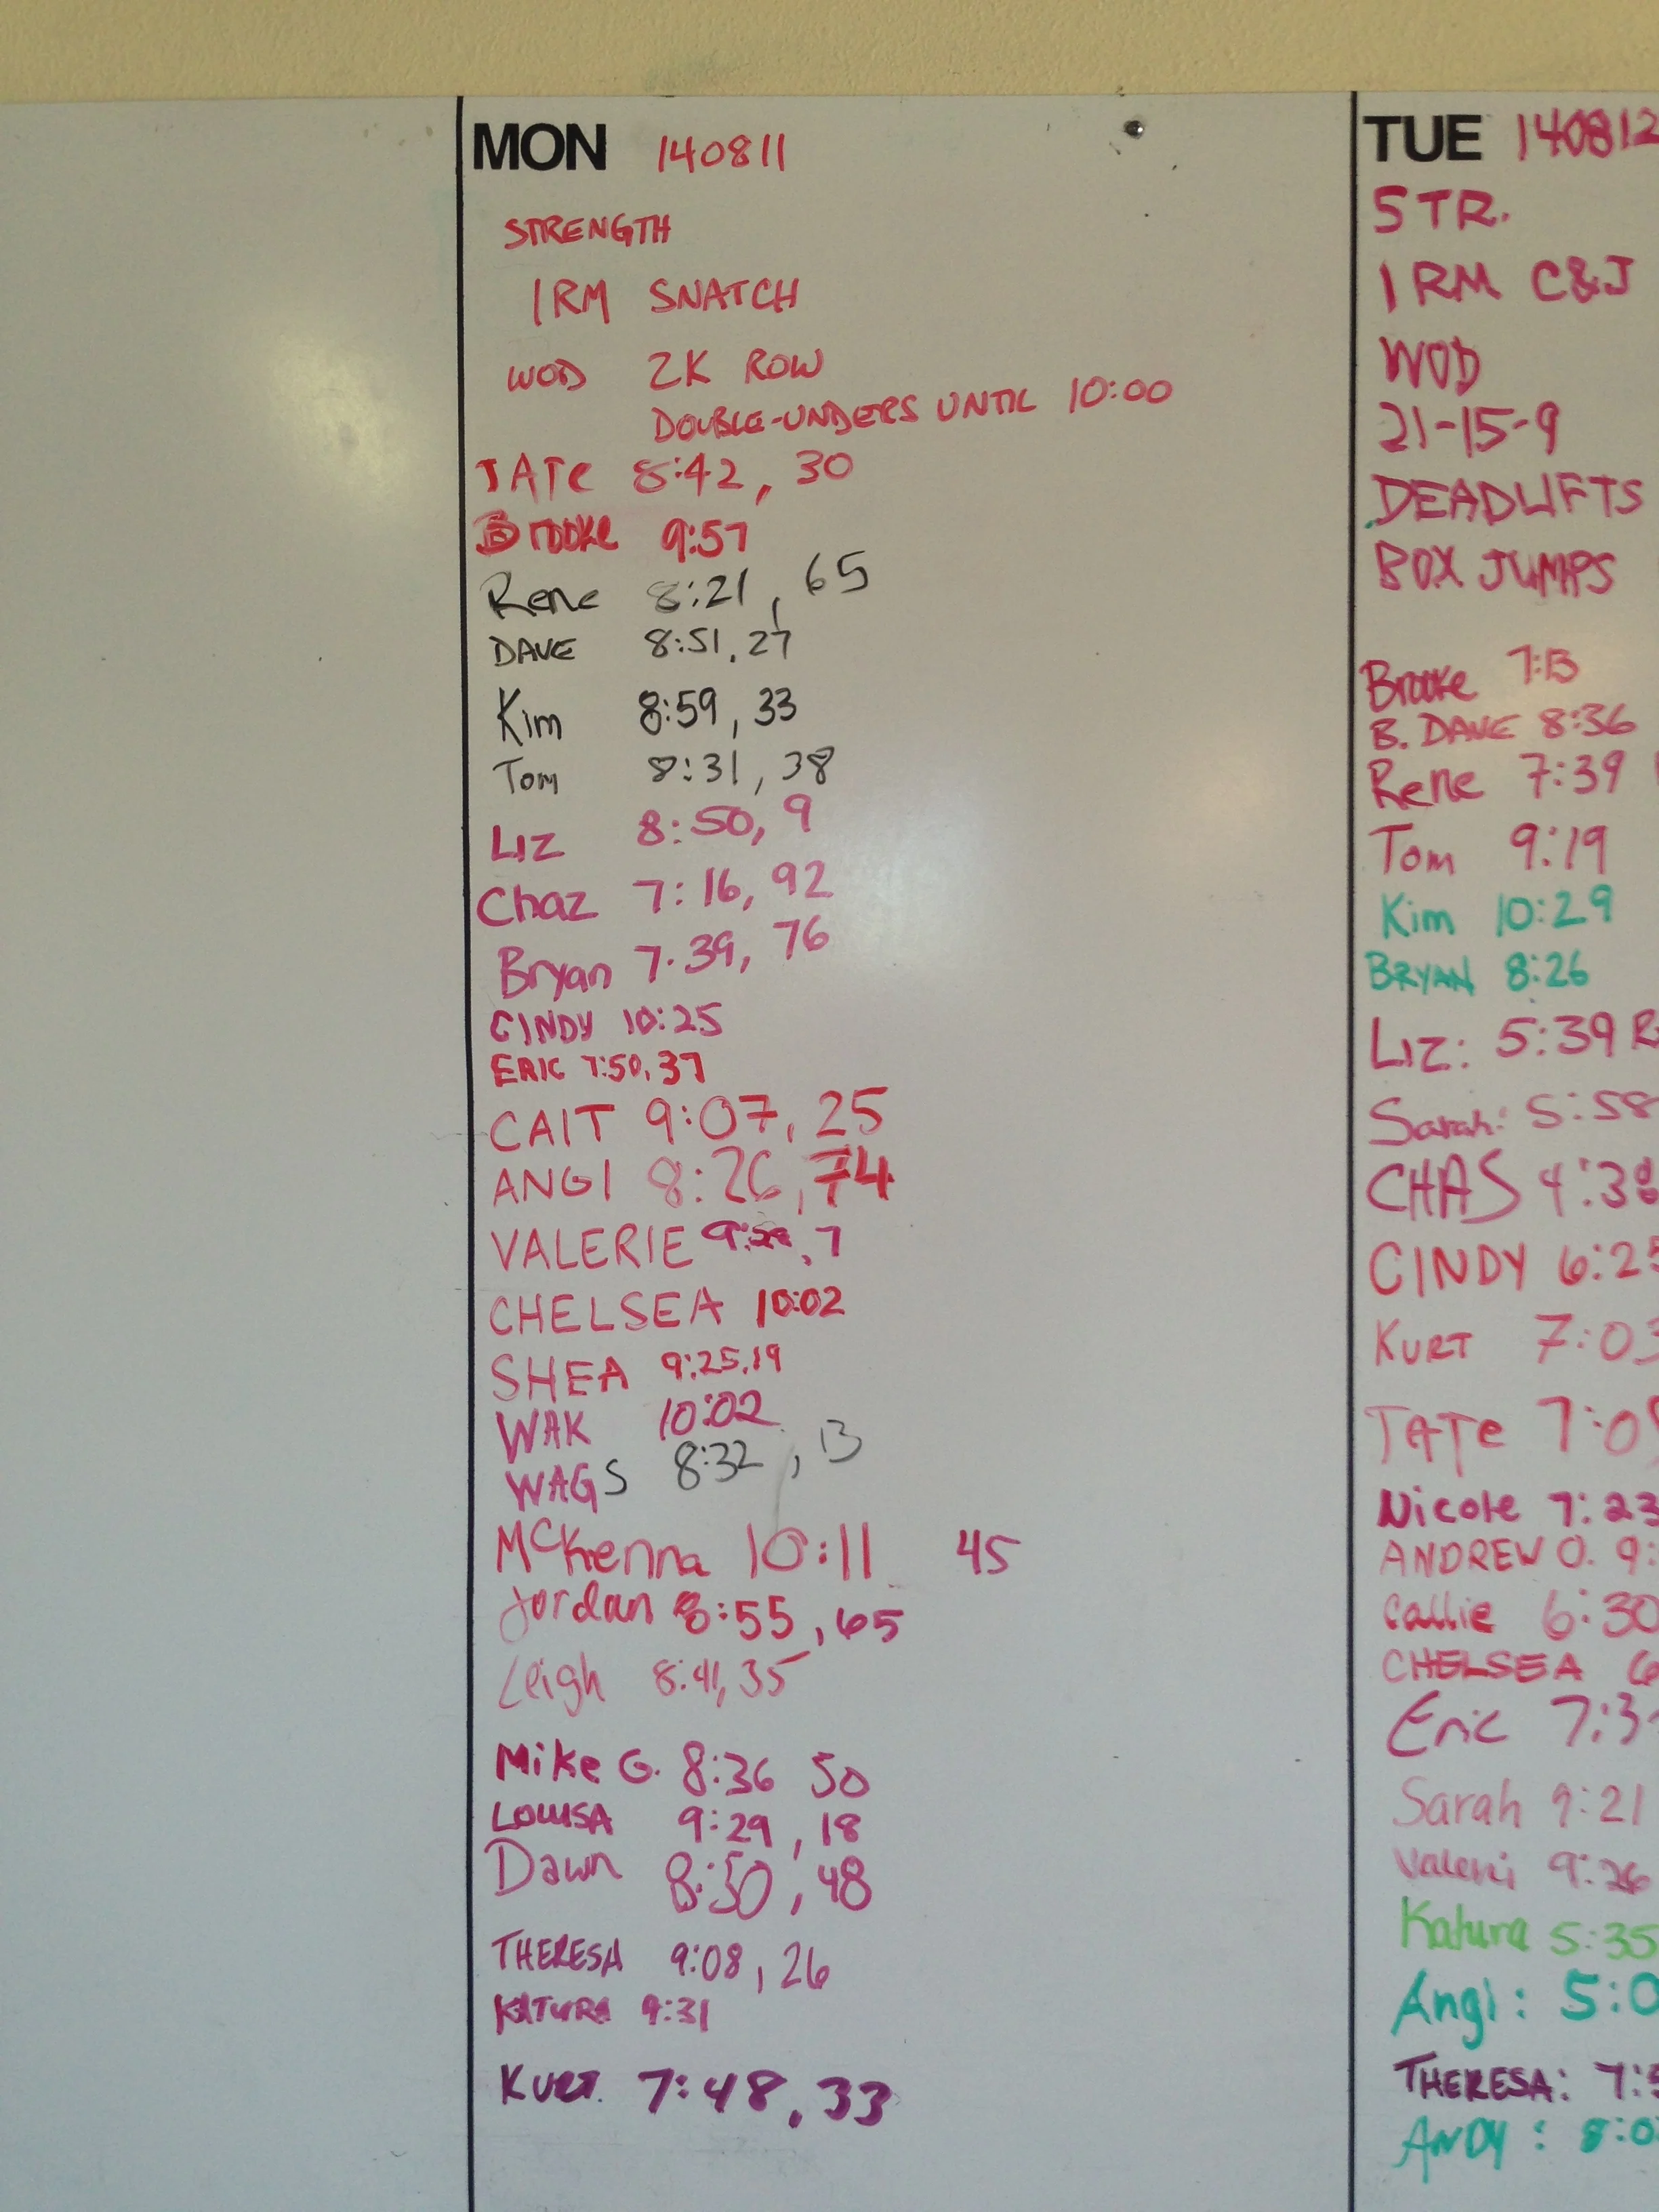 MON 140811
STRENGTH
1RM SNATCH
WOD 2K ROW
DOUBLE-UNDERS UNTIL 10:00
TATe 8:42, 30
Brooke 9:57
Rene 8:21, 65
DAVE 8:51, 27
Kim 8:59, 33
Tom 8:31, 38
LIZ 8:50, 9
Chaz 7:16, 92
Bryan 7.39, 76
CINDY 10:25
ERIC 7:50, 37
CAIT 9:07, 25
ANGI 8:26, 74
VALERIE , 7
CHELSEA 10:02
SHEA 9:25, 19
WAK 10:02
WAGS 8:32, 13
McKenna 10:11 45
Jordan 8:55, 65
Leigh 8:41, 35
Mike G. 8:36 50
LOUISA 9:29, 18
Dawn 8:50, 48
THERESA 9:08, 26
KATURA 9:31
KURT. 7:48, 33
TUE 140812
STR.
1 RM C&J
WOD
21-15-9
DEADLIFTS
BOX JUMPS
Brooke 7:13
B. DAVE 8:36
Rene 7:39
Tom 9:19
Kim 10:29
BRYAN 8:26
LIZ: 5:39 R
Sarah: 5:58
CHAS 4:38
CINDY 6:25
KURT 7:03
TATe 7:0
Nicole 7:23
ANDREW O. 9:
Callie 6:30
CHELSEA 6
Eric 7:3
Sarah 9:21
Valeri 9:26
Katura 5:35
Angi: 5:0
THERESA: 7:
ANDY: 8:0